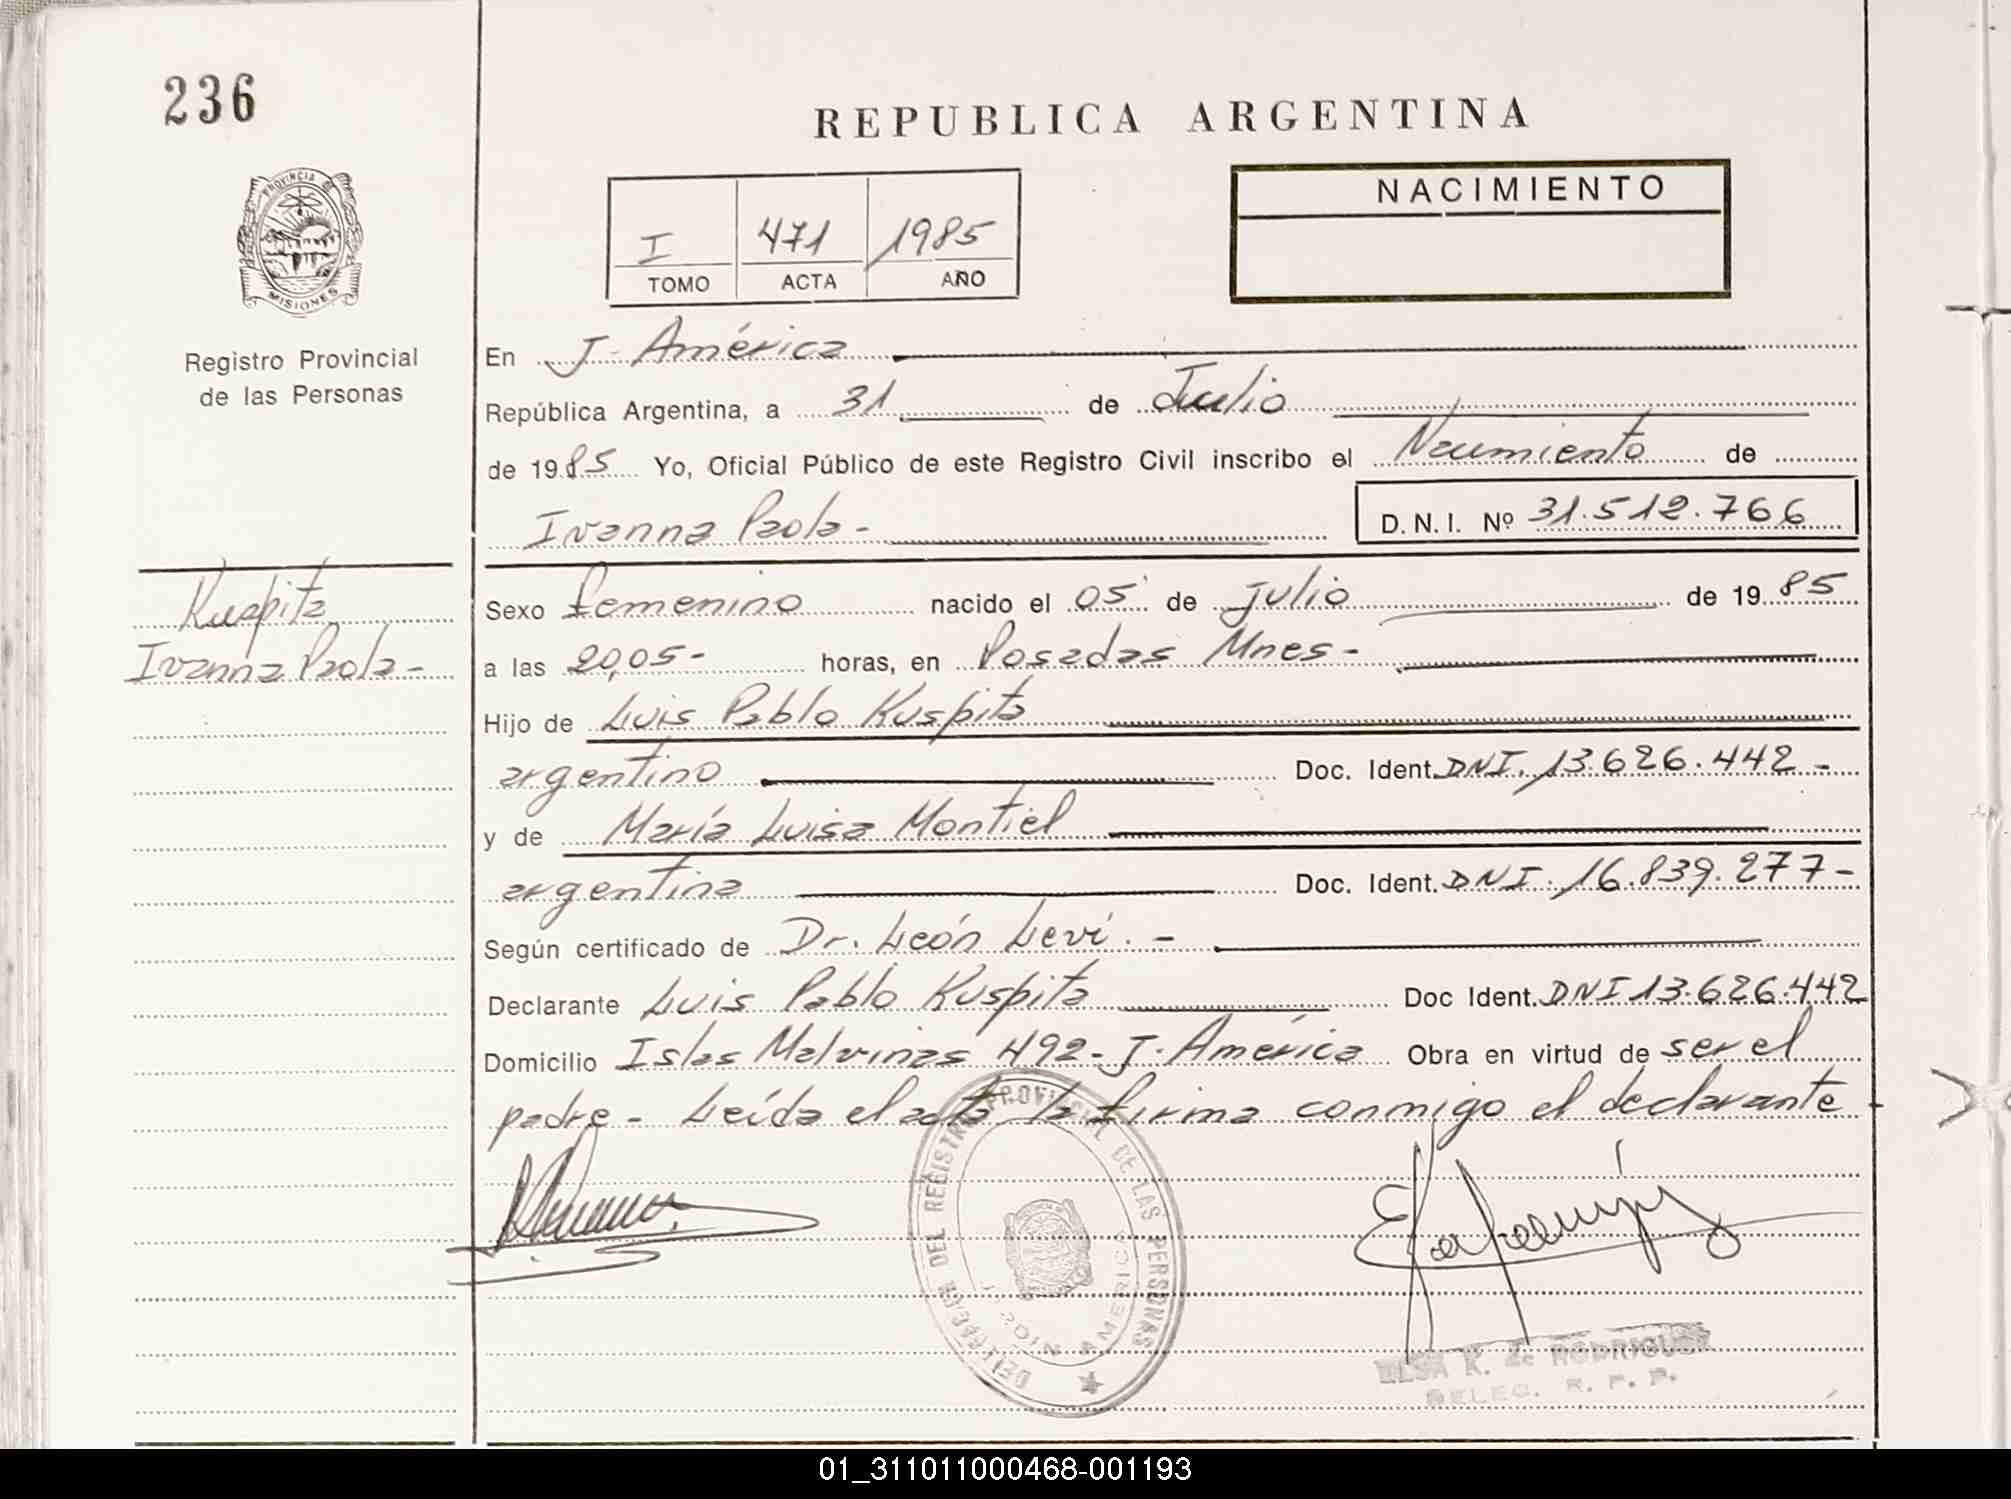 236
REPUBLICA ARGENTINA
PROVINCIA DE
MISIONES
Registro Provincial
de las Personas
I 471 1985
TOMO ACTA AÑO
NACIMIENTO
En J. América
República Argentina, a 31 de Julio
de 1985 Yo, Oficial Público de este Registro Civil inscribo el Nacimiento de
Ivanna Paola-
D.N.I. Nº 31.512.766
Kuspita
Ivanna Paola-
Sexo femenino nacido el 05 de julio de 1985
a las 20,05- horas, en Posadas Mnes-
Hijo de Luis Pablo Kuspita
argentino Doc. Ident. DNI. 13.626.442-
y de María Luisa Montiel
argentina Doc. Ident. DNI. 16.839.277-
Según certificado de Dr. León Levi.-
Declarante Luis Pablo Kuspita Doc Ident. DNI 13.626.442
Domicilio Islas Malvinas 492- J. América Obra en virtud de ser el
padre- Leída el acta la firma conmigo el declarante
DEL REGISTRO PROVINCIAL DE LAS PERSONAS
AMERICA
ELSA K. de RODRIGUEZ
DELEG. R. P. P.
01_311011000468-001193